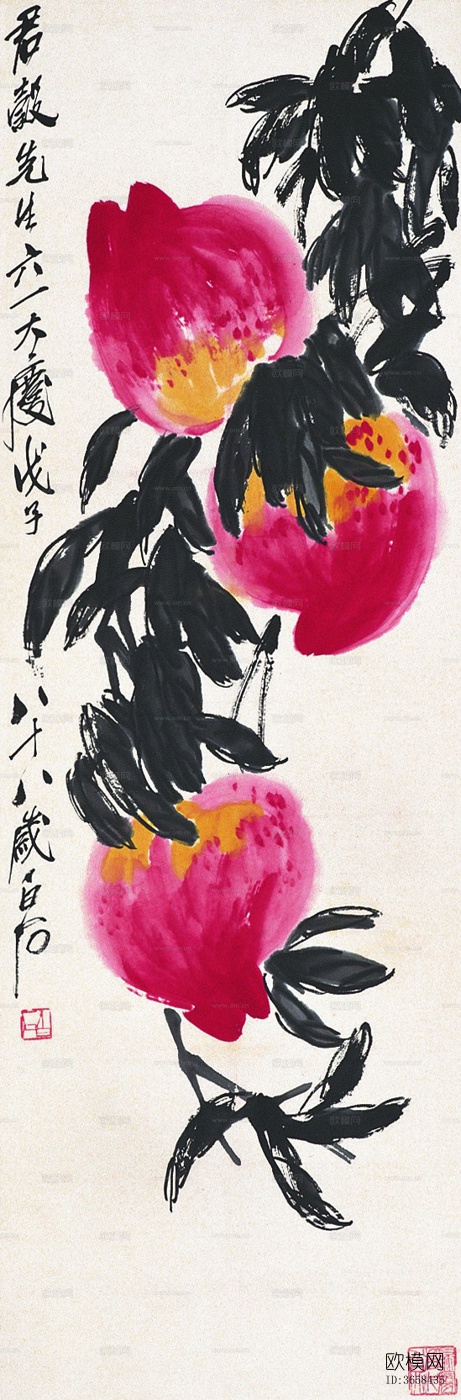 君毅先生六一大慶戊子
八十八歲白石
欧模网
ID:3658435